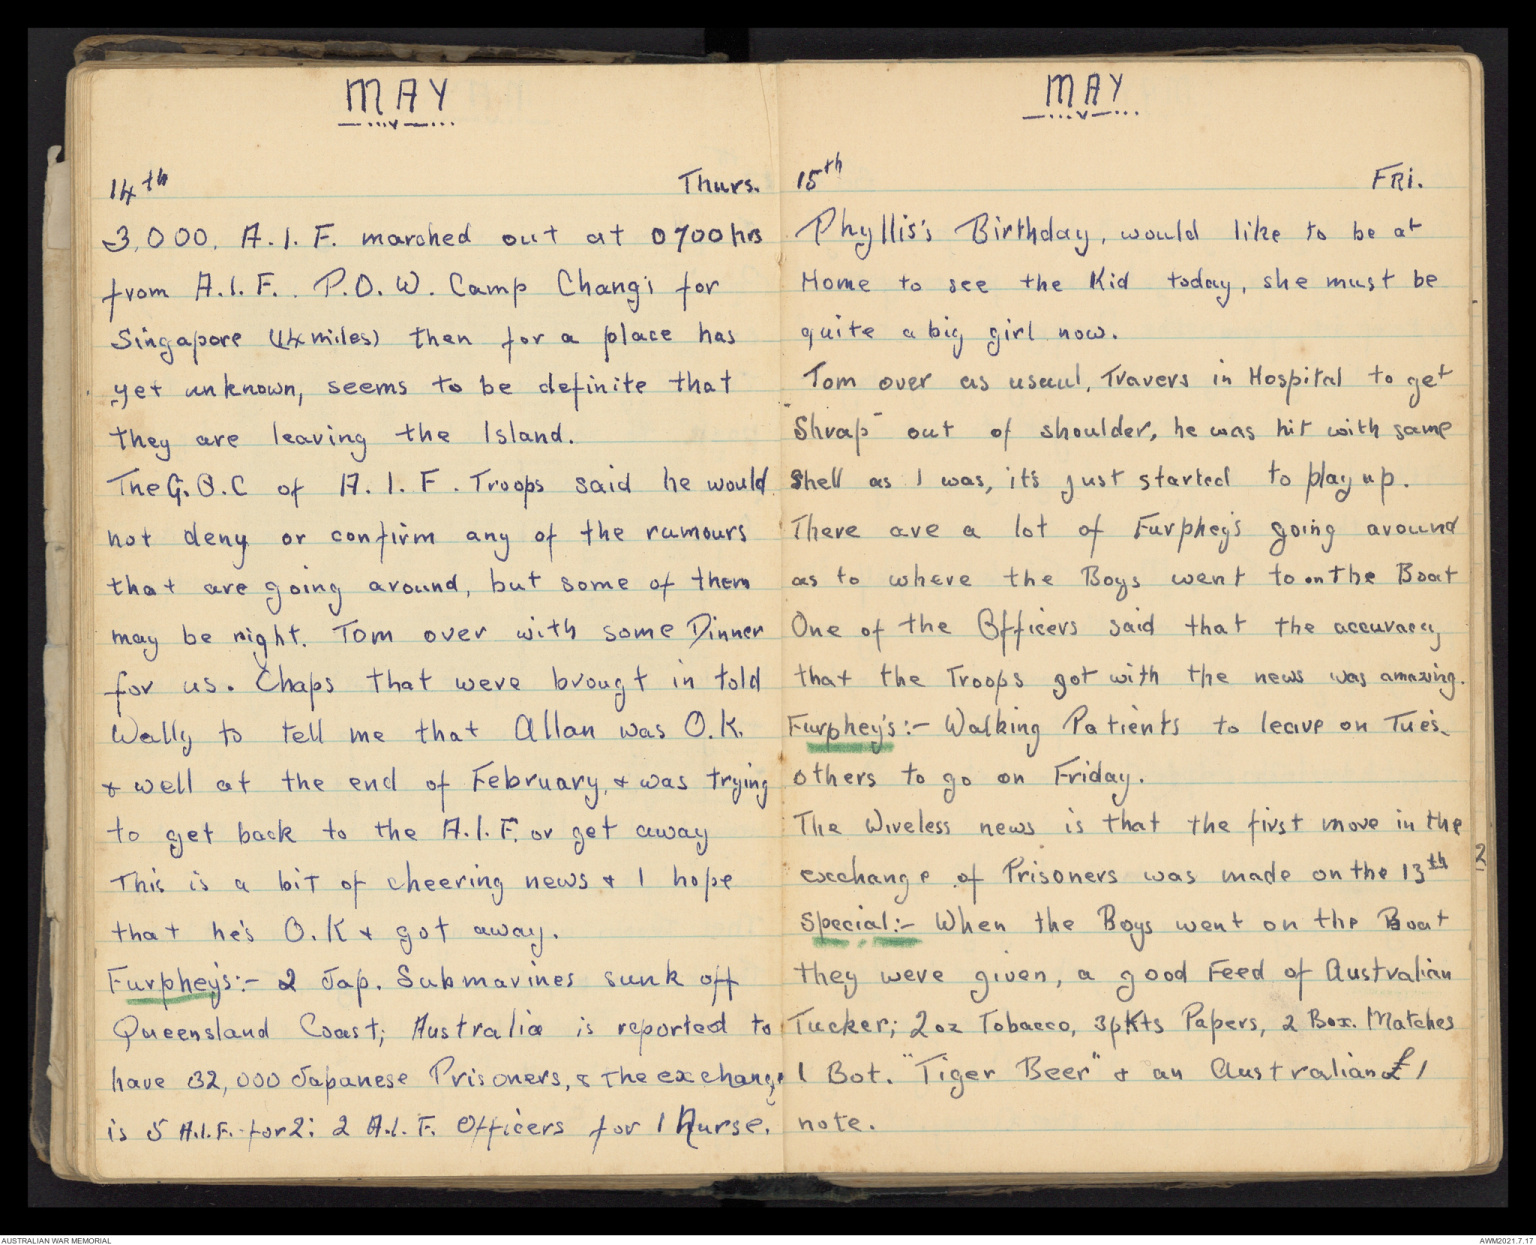 MAY
14th Thurs.
3,000. A.I.F. marched out at 0700 hrs
from A.I.F. P.O.W. Camp Changi for
Singapore (14 miles) then for a place has
yet unknown, seems to be definite that
they are leaving the Island.
The G.O.C of A.I.F. Troops said he would
not deny or confirm any of the rumours
that are going around, but some of them
may be right. Tom over with some Dinner
for us. Chaps that were brougt in told
Wally to tell me that Allan was O.K.
& well at the end of February, & was trying
to get back to the A.I.F. or get away
This is a bit of cheering news & I hope
that he's O.K & got away.
Furphey's:- 2 Jap. Submarines sunk off
Queensland Coast; Australia is reported to
have 32,000 Japanese Prisoners, & the exchange
is 5 A.I.F. for 2; 2 A.I.F. Officers for 1 Nurse.
MAY
15th FRI.
Phyllis's Birthday, would like to be at
Home to see the Kid today, she must be
quite a big girl now.
Tom over as usual, Travers in Hospital to get
"Shrap" out of shoulder, he was hit with same
shell as I was, it's just started to play up.
There are a lot of Furphey's going around
as to where the Boys went to on the Boat
One of the Officers said that the accuracy
that the Troops got with the news was amazing.
Furphey's:- Walking Patients to leave on Tues.
others to go on Friday.
The Wireless news is that the first move in the
exchange of Prisoners was made on the 13th
Special:- When the Boys went on the Boat
they were given, a good Feed of Australian
Tucker; 2oz Tobacco, 3pkts Papers, 2 Box. Matches
1 Bot. "Tiger Beer" & an Australian £1
note.
2
AUSTRALIAN WAR MEMORIAL
AWM2021.7.17